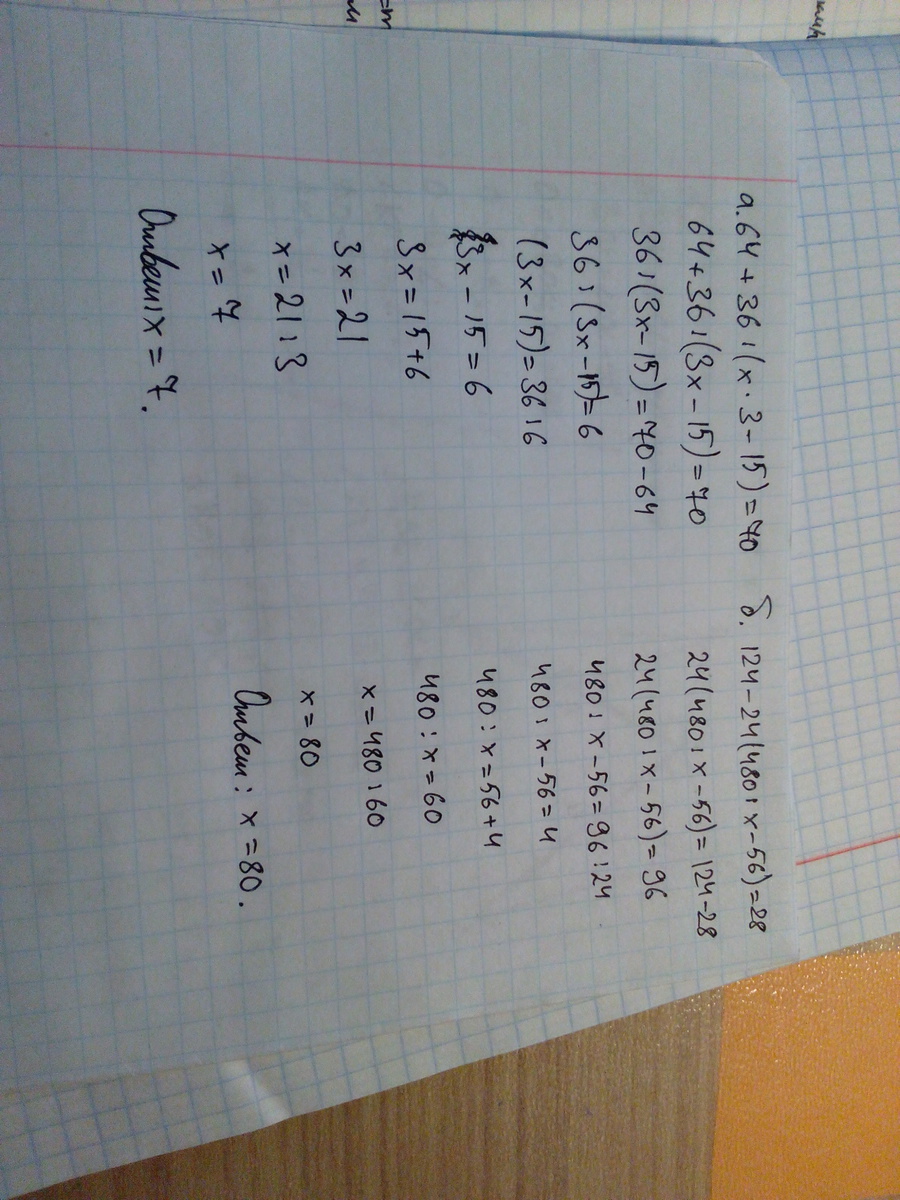 а. 64 + 36 : (x · 3 - 15) = 70
64 + 36 : (3x - 15) = 70
36 : (3x - 15) = 70 - 64
36 : (3x - 15) = 6
(3x - 15) = 36 : 6
3x - 15 = 6
3x = 15 + 6
3x = 21
x = 21 : 3
x = 7
Ответ: x = 7.
б. 124 - 24(480 : x - 56) = 28
24(480 : x - 56) = 124 - 28
24(480 : x - 56) = 96
480 : x - 56 = 96 : 24
480 : x - 56 = 4
480 : x = 56 + 4
480 : x = 60
x = 480 : 60
x = 80
Ответ: x = 80.